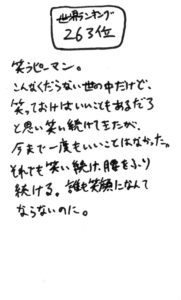 世界ランキング
263位
笑うピーマン。
こんなくだらない世の中だけど、
笑っておけばいいこともあるだろ
と思い笑い続けてきたが、
今まで一度もいいことはなかった。
それでも笑い続け、腰をふり
続ける。誰も笑顔になんて
ならないのに。